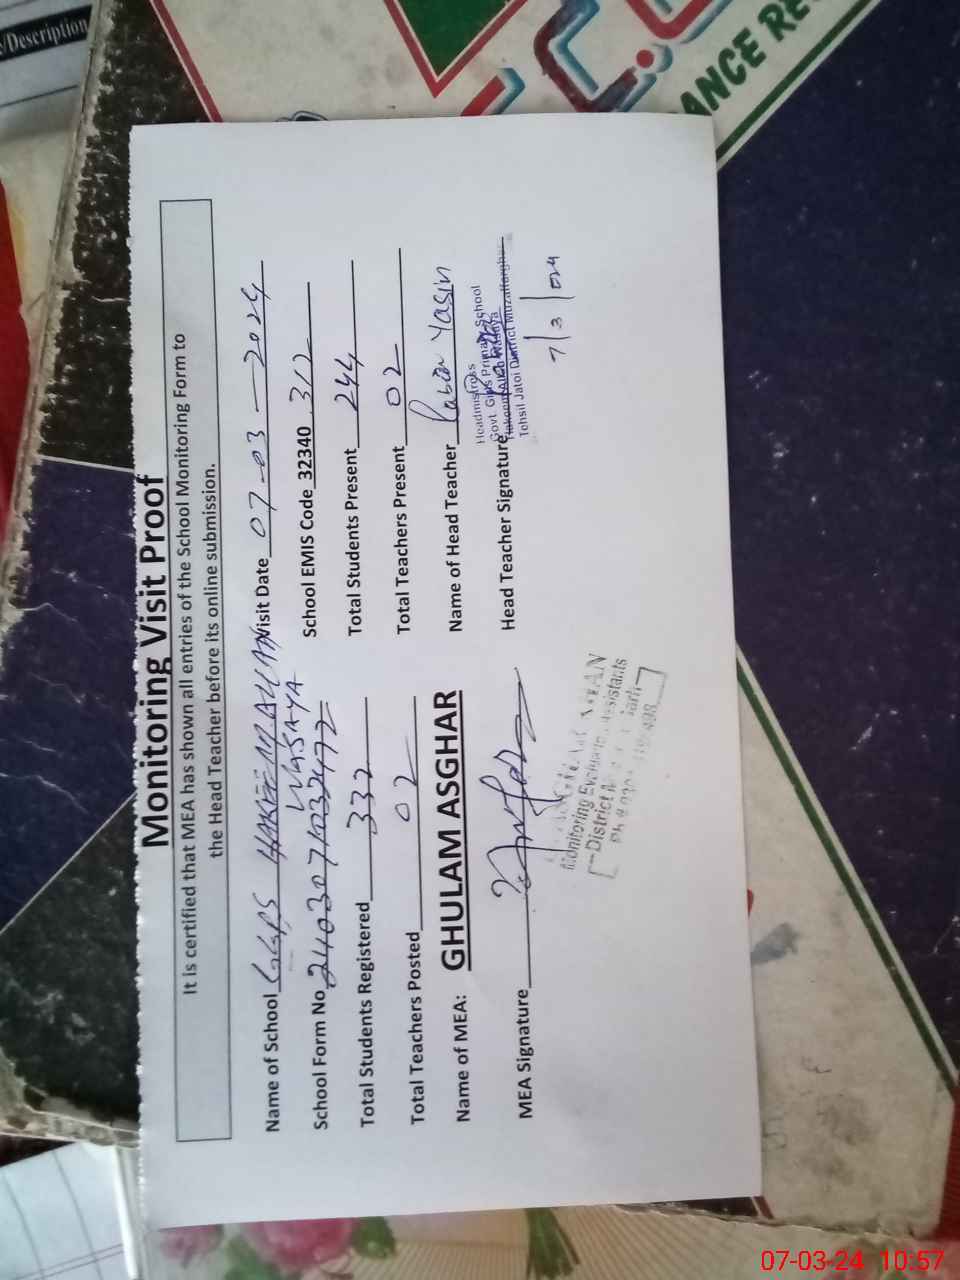 e/Description
ANCE RE
Monitoring Visit Proof
It is certified that MEA has shown all entries of the School Monitoring Form to
the Head Teacher before its online submission.
Name of School GGPS HAKEEM ALLAH WASAYA Visit Date 07-03-2024
School Form No School EMIS Code 32340 312
Total Students Registered 332 Total Students Present 244
Total Teachers Posted 02 Total Teachers Present 02
Name of MEA: GHULAM ASGHAR Name of Head Teacher Yasin
Headmistress
Govt. Girls Primary School
Tehsil Jatoi District Muzaffargarh
MEA Signature Head Teacher Signature
7/3/024
Monitoring Evaluation Assistants
District
07-03-24 10:57